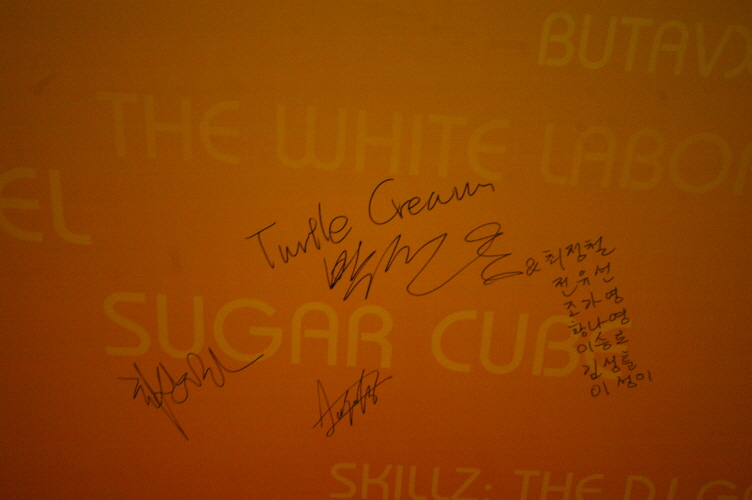 BUTAVX
THE WHITE LABOR
EL
Turtle Cream
박선용 & 최정철
전유선
조가영
황나영
이승로
김성률
이성이
SUGAR CUBE
SKILLZ: THE DJ GA